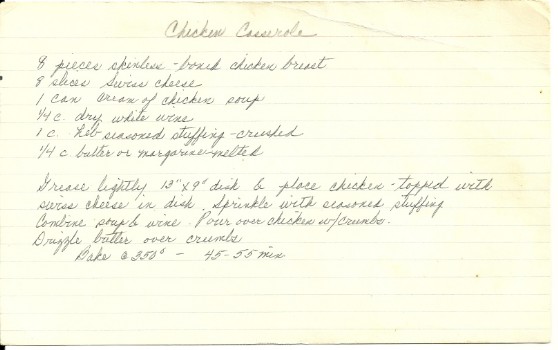 Chicken Casserole
8 pieces skinless-boned chicken breast
8 slices Swiss cheese
1 can cream of chicken soup
1/4 c. dry white wine
1 c. Herb seasoned stuffing-crushed
1/4 c butter or margarine-melted
Grease lightly 13" x 9" dish & place chicken-topped with
swiss cheese in dish. Sprinkle with seasoned stuffing
Combine soup & wine. Pour over chicken w/crumbs.
Drizzle butter over crumbs
Bake @ 350° - 45-55 min